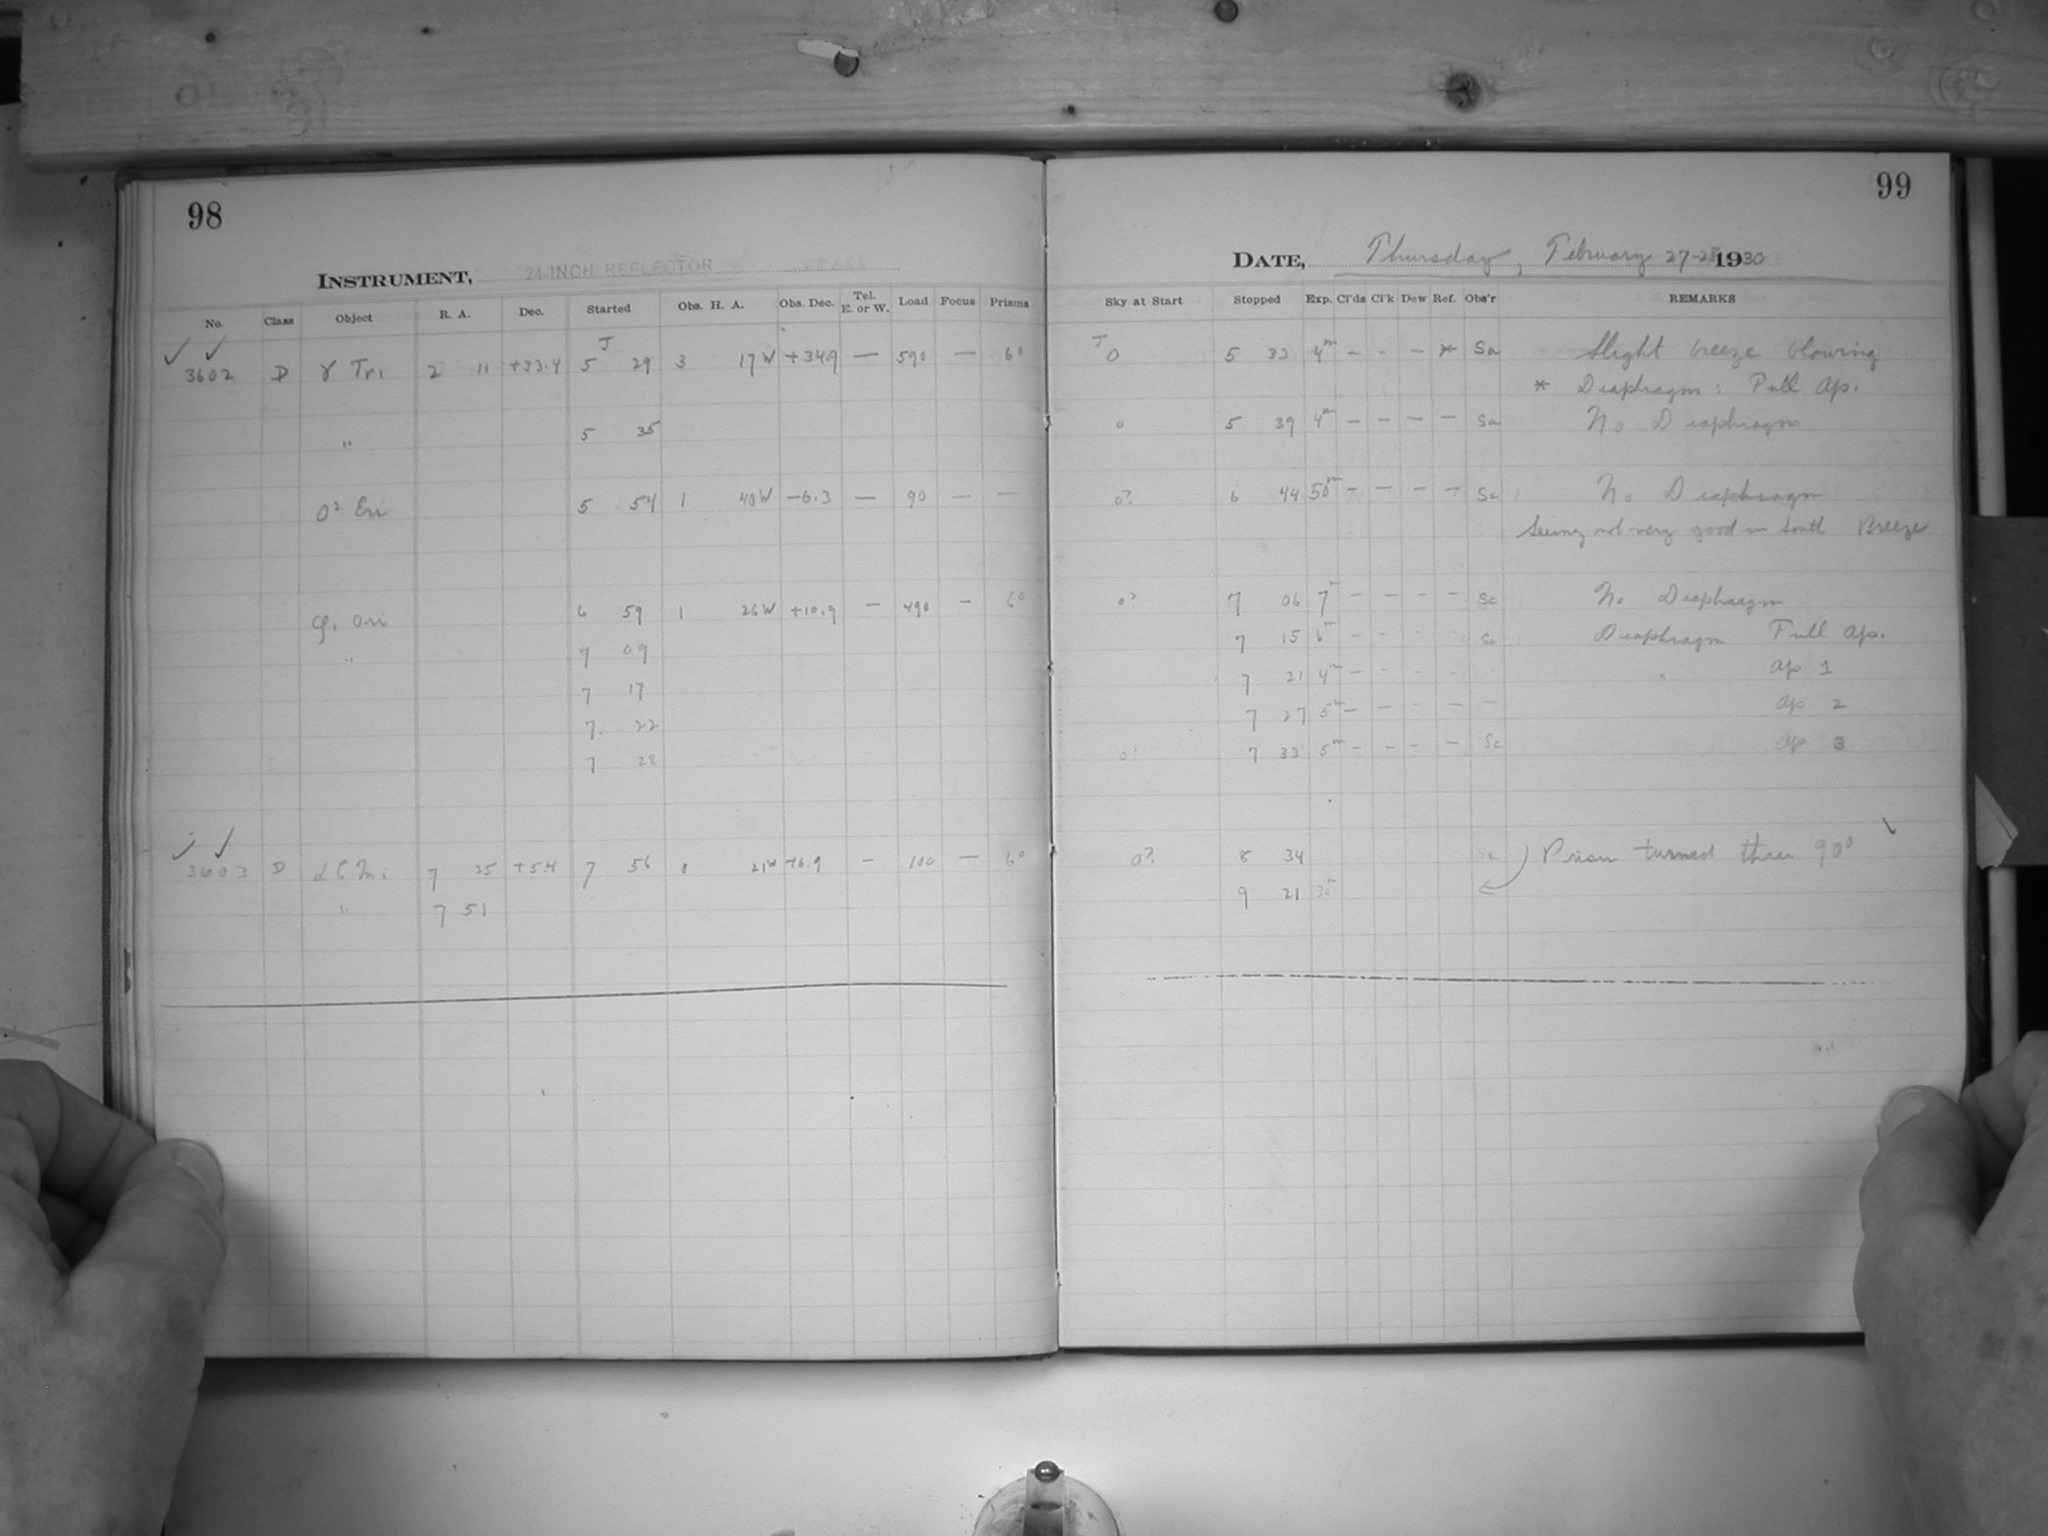 98
INSTRUMENT, 24-INCH REFLECTOR
No. Class Object R. A. Dec. Started Obs. H. A. Obs. Dec. Tel. E. or W. Load Focus Prisms
3602 D γ Tri 2 11 +33.4 5 29 3 17 W +34.9 — 590 — 6°
" 5 35
O² Eri 5 54 1 40 W -6.3 — 90 — —
φ, Ori 6 59 1 26 W +10.9 — 490 — 6°
" 7 09
7 17
7. 22
7 28
3603 D α C Mi 7 35 +5.4 7 56 0 21 W +6.9 — 100 — 6°
" 7 51
99
DATE, Thursday, February 27-28 1930
Sky at Start Stopped Exp. Cl'ds Cl'k Dew Ref. Obs'r REMARKS
0 5 33 4m — - — * Sa Slight breeze blowing
* Diaphragm: Full Ap.
0 5 39 4m — - — — Sa No Diaphragm
0? 6 44 50m - — — — Sc No Diaphragm
Seeing not very good in South Breeze
0? 7 06 7m - - - - Sc No Diaphragm
7 15 6m - - - Sa Diaphragm Full Ap.
7 21 4m - - - - - " Ap 1
7 27 5m — - - - - Ap 2
7 33 5m - - — — Sc Ap 3
0? 8 34 Sc Prism turned thru 90°
9 21 30m